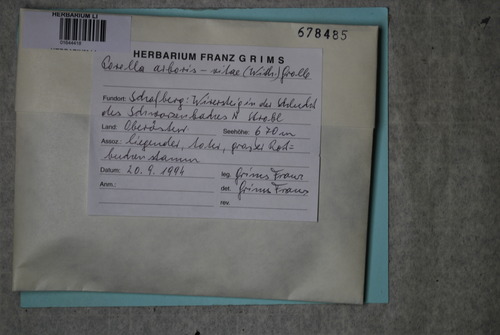 HERBARIUM LI
678485
HERBARIUM FRANZ GRIMS
Porella arboris-vitae (With.) Grolle
Fundort: Schafberg: Wiesersteig in der Schlucht
des Schwarzenbaches N Strobl
Land: Oberösterr. Seehöhe: 670 m
Assoz.: liegender, toter, grosser Rot-
buchenstamm
Datum: 20.9.1994 leg. Grims Franz
Anm.: det. Grims Franz
rev.